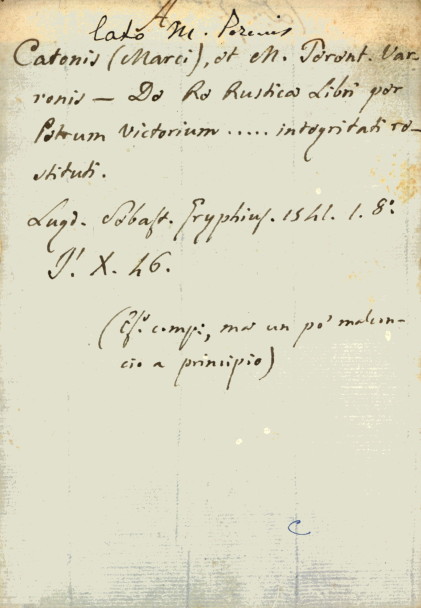 A
Cato M. Porcius
Catonis (Marci), et M. Terent. Var-
ronis — De Re Rustica Libri per
Petrum Victorium ..... integritati re-
stituti.
Lugd. Sebast. Gryphius. 1541. 1. 8º
J! X. 46.
comp:, ma un po' malcon-
cio a principio)
C